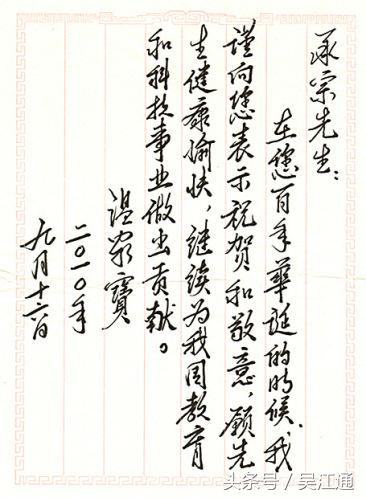 承宗先生：
在您百年華诞的时候，我
谨向您表示祝贺和敬意，愿先
生健康愉快，继续为我国教育
和科技事业做出贡献。
温家寶
二〇一〇年
九月十六日
头条号／吴江通